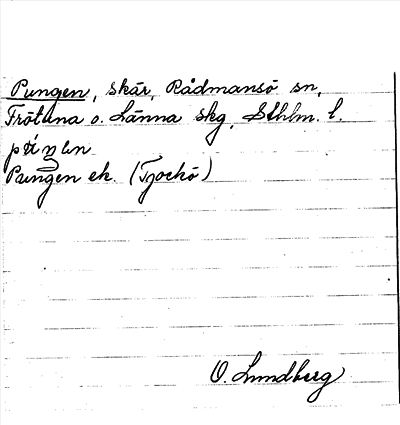 Pungen, skär, Rådmansö sn,
Frötuna o. Länna skg, Sthlm. l.
Pungen ek. (Tjockö)
O. Lundberg